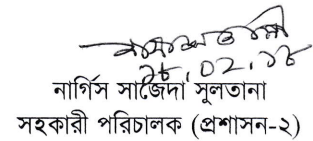 ১৮.০২.১৮
নার্গিস সাজেদা সুলতানা
সহকারী পরিচালক (প্রশাসন-২)